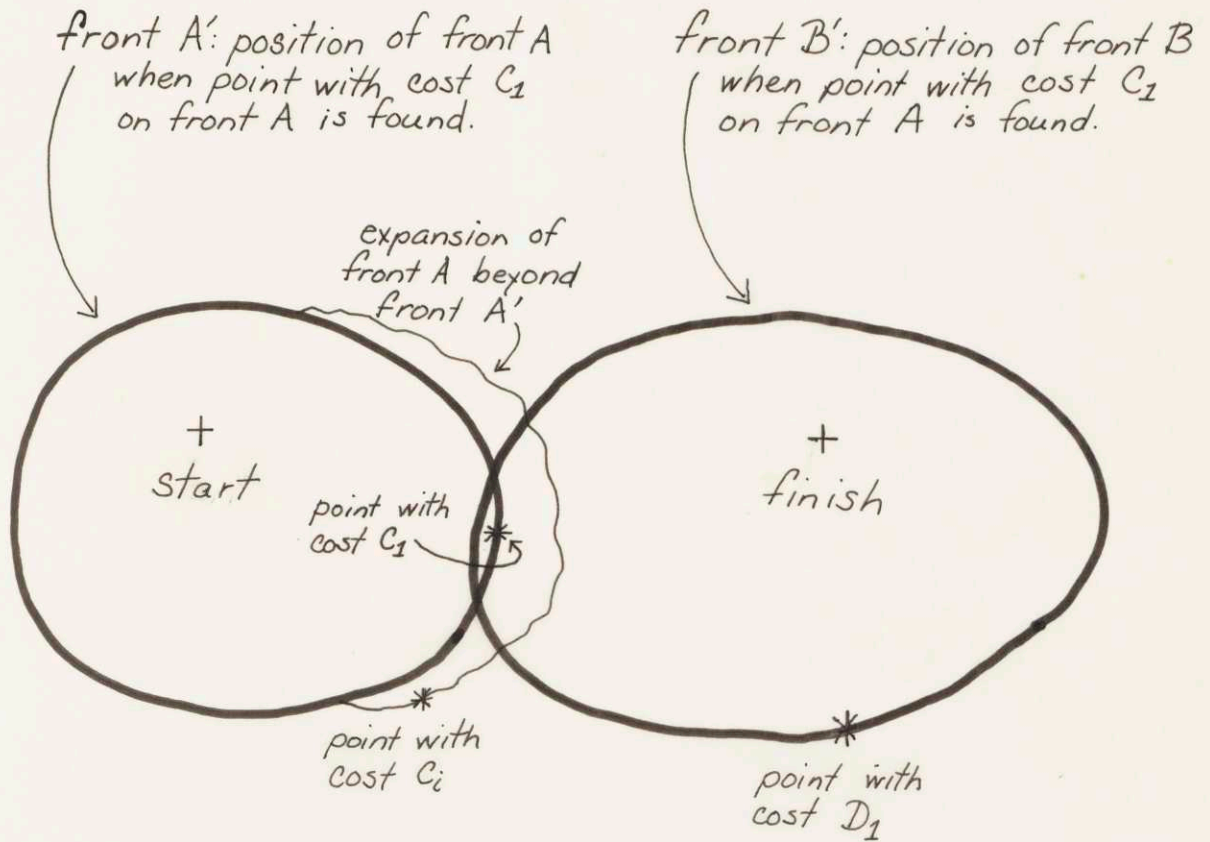 front A′: position of front A
when point with cost C₁
on front A is found.
front B′: position of front B
when point with cost C₁
on front A is found.
expansion of
front A beyond
front A′
+
start
+
finish
point with
cost C₁
point with
cost Cᵢ
point with
cost D₁